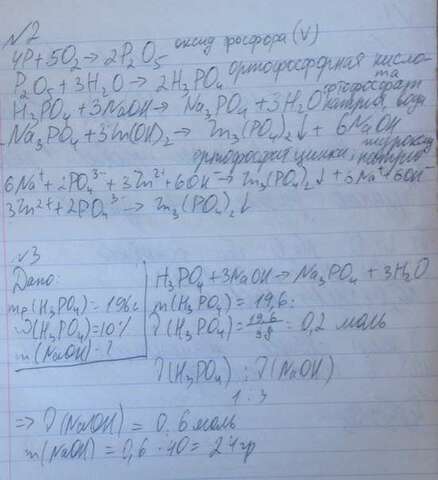 №2
4P+5O₂→2P₂O₅ оксид фосфора (V)
P₂O₅+3H₂O→2H₃PO₄ ортофосфорная кислота
H₃PO₄+3NaOH→Na₃PO₄+3H₂O ортофосфат натрия, вода
Na₃PO₄+3Zn(OH)₂→Zn₃(PO₄)₂↓+6NaOH
ортофосфат цинка, гидроксид натрия
6Na⁺+2PO₄³⁻+3Zn²⁺+6OH⁻→Zn₃(PO₄)₂↓+6Na⁺+6OH⁻
3Zn²⁺+2PO₄³⁻→Zn₃(PO₄)₂↓
№3
Дано:
mр(H₃PO₄)=196г
ω(H₃PO₄)=10%
m(NaOH)-?
H₃PO₄+3NaOH→Na₃PO₄+3H₂O
m(H₃PO₄)=19,6г
ν(H₃PO₄)=19,6/98=0,2 моль
ν(H₃PO₄):ν(NaOH)
1:3
⇒ν(NaOH)=0,6 моль
m(NaOH)=0,6·40=24гр